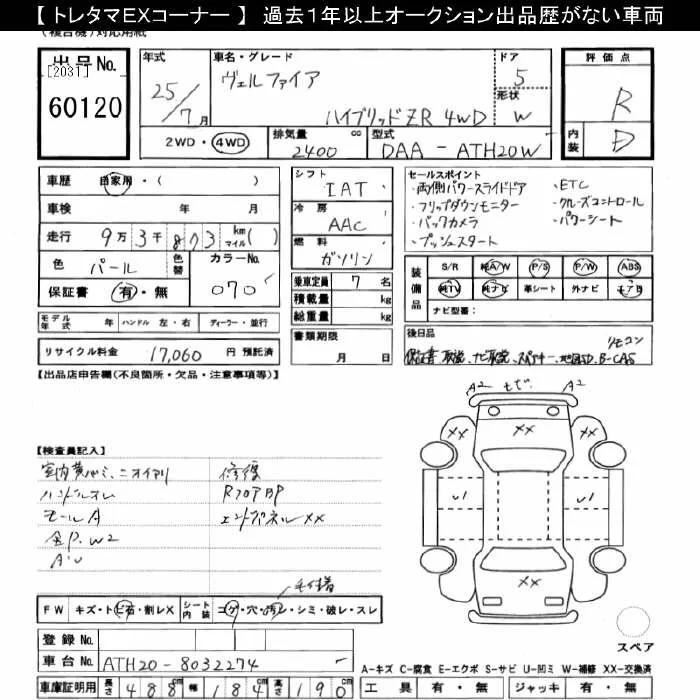 【 トレタマEXコーナー 】 過去１年以上オークション出品歴がない車両
出品No.
[2031]
60120
年式
25/7月
車名・グレード
ヴェルファイア
ハイブリッドZR 4WD
ドア
5
形状
W
評価点
R
内装
D
2WD・4WD
排気量
2400
cc
型式
DAA - ATH20W
車歴
自家用・( )
車検 年 月
走行
9万3千873
km
マイル( )
色
パール
色替
カラーNo.
070
保証書 有・無
モデル年式 年 ハンドル 左・右 ディーラー・並行
リサイクル料金 17,060 円 預託済
シフト
IAT
冷房
AAC
燃料
ガソリン
乗車定員 7 名
積載量 kg
総重量 kg
書類期限
月 日
セールスポイント
・両側パワースライドドア
・フリップダウンモニター
・バックカメラ
・プッシュスタート
・ETC
・クルーズコントロール
・パワーシート
装備品
S/R 純A/W P/S P/W ABS
純TV 純ナビ 革シート 外ナビ エアB
ナビ型番：
後日品
リモコン
保証書、取説、ナビ取説、スペアキー、地図SD、B-CAS
【出品店申告欄(不良箇所・欠品・注意事項等)】
【検査員記入】
室内黄バミ、ニオイアリ
ハンドルスレ
モールA
全P. W2
A・U
修復
R7OP BP
エンドパネル XX
A2
A2
XX
XX
XX
U1
U1
XX
FW キズ・トビ石・割レX
シート内装 コゲ・穴・汚レ・シミ・破レ・スレ
登録No.
車台No. ATH20-8032274
車庫証明用 長さ 488cm 幅 184cm 高さ 190cm
スペア
A-キズ C-腐食 E-エクボ S-サビ U-凹ミ W-補修 XX-交換済
工具 有・無 ジャッキ 有・無